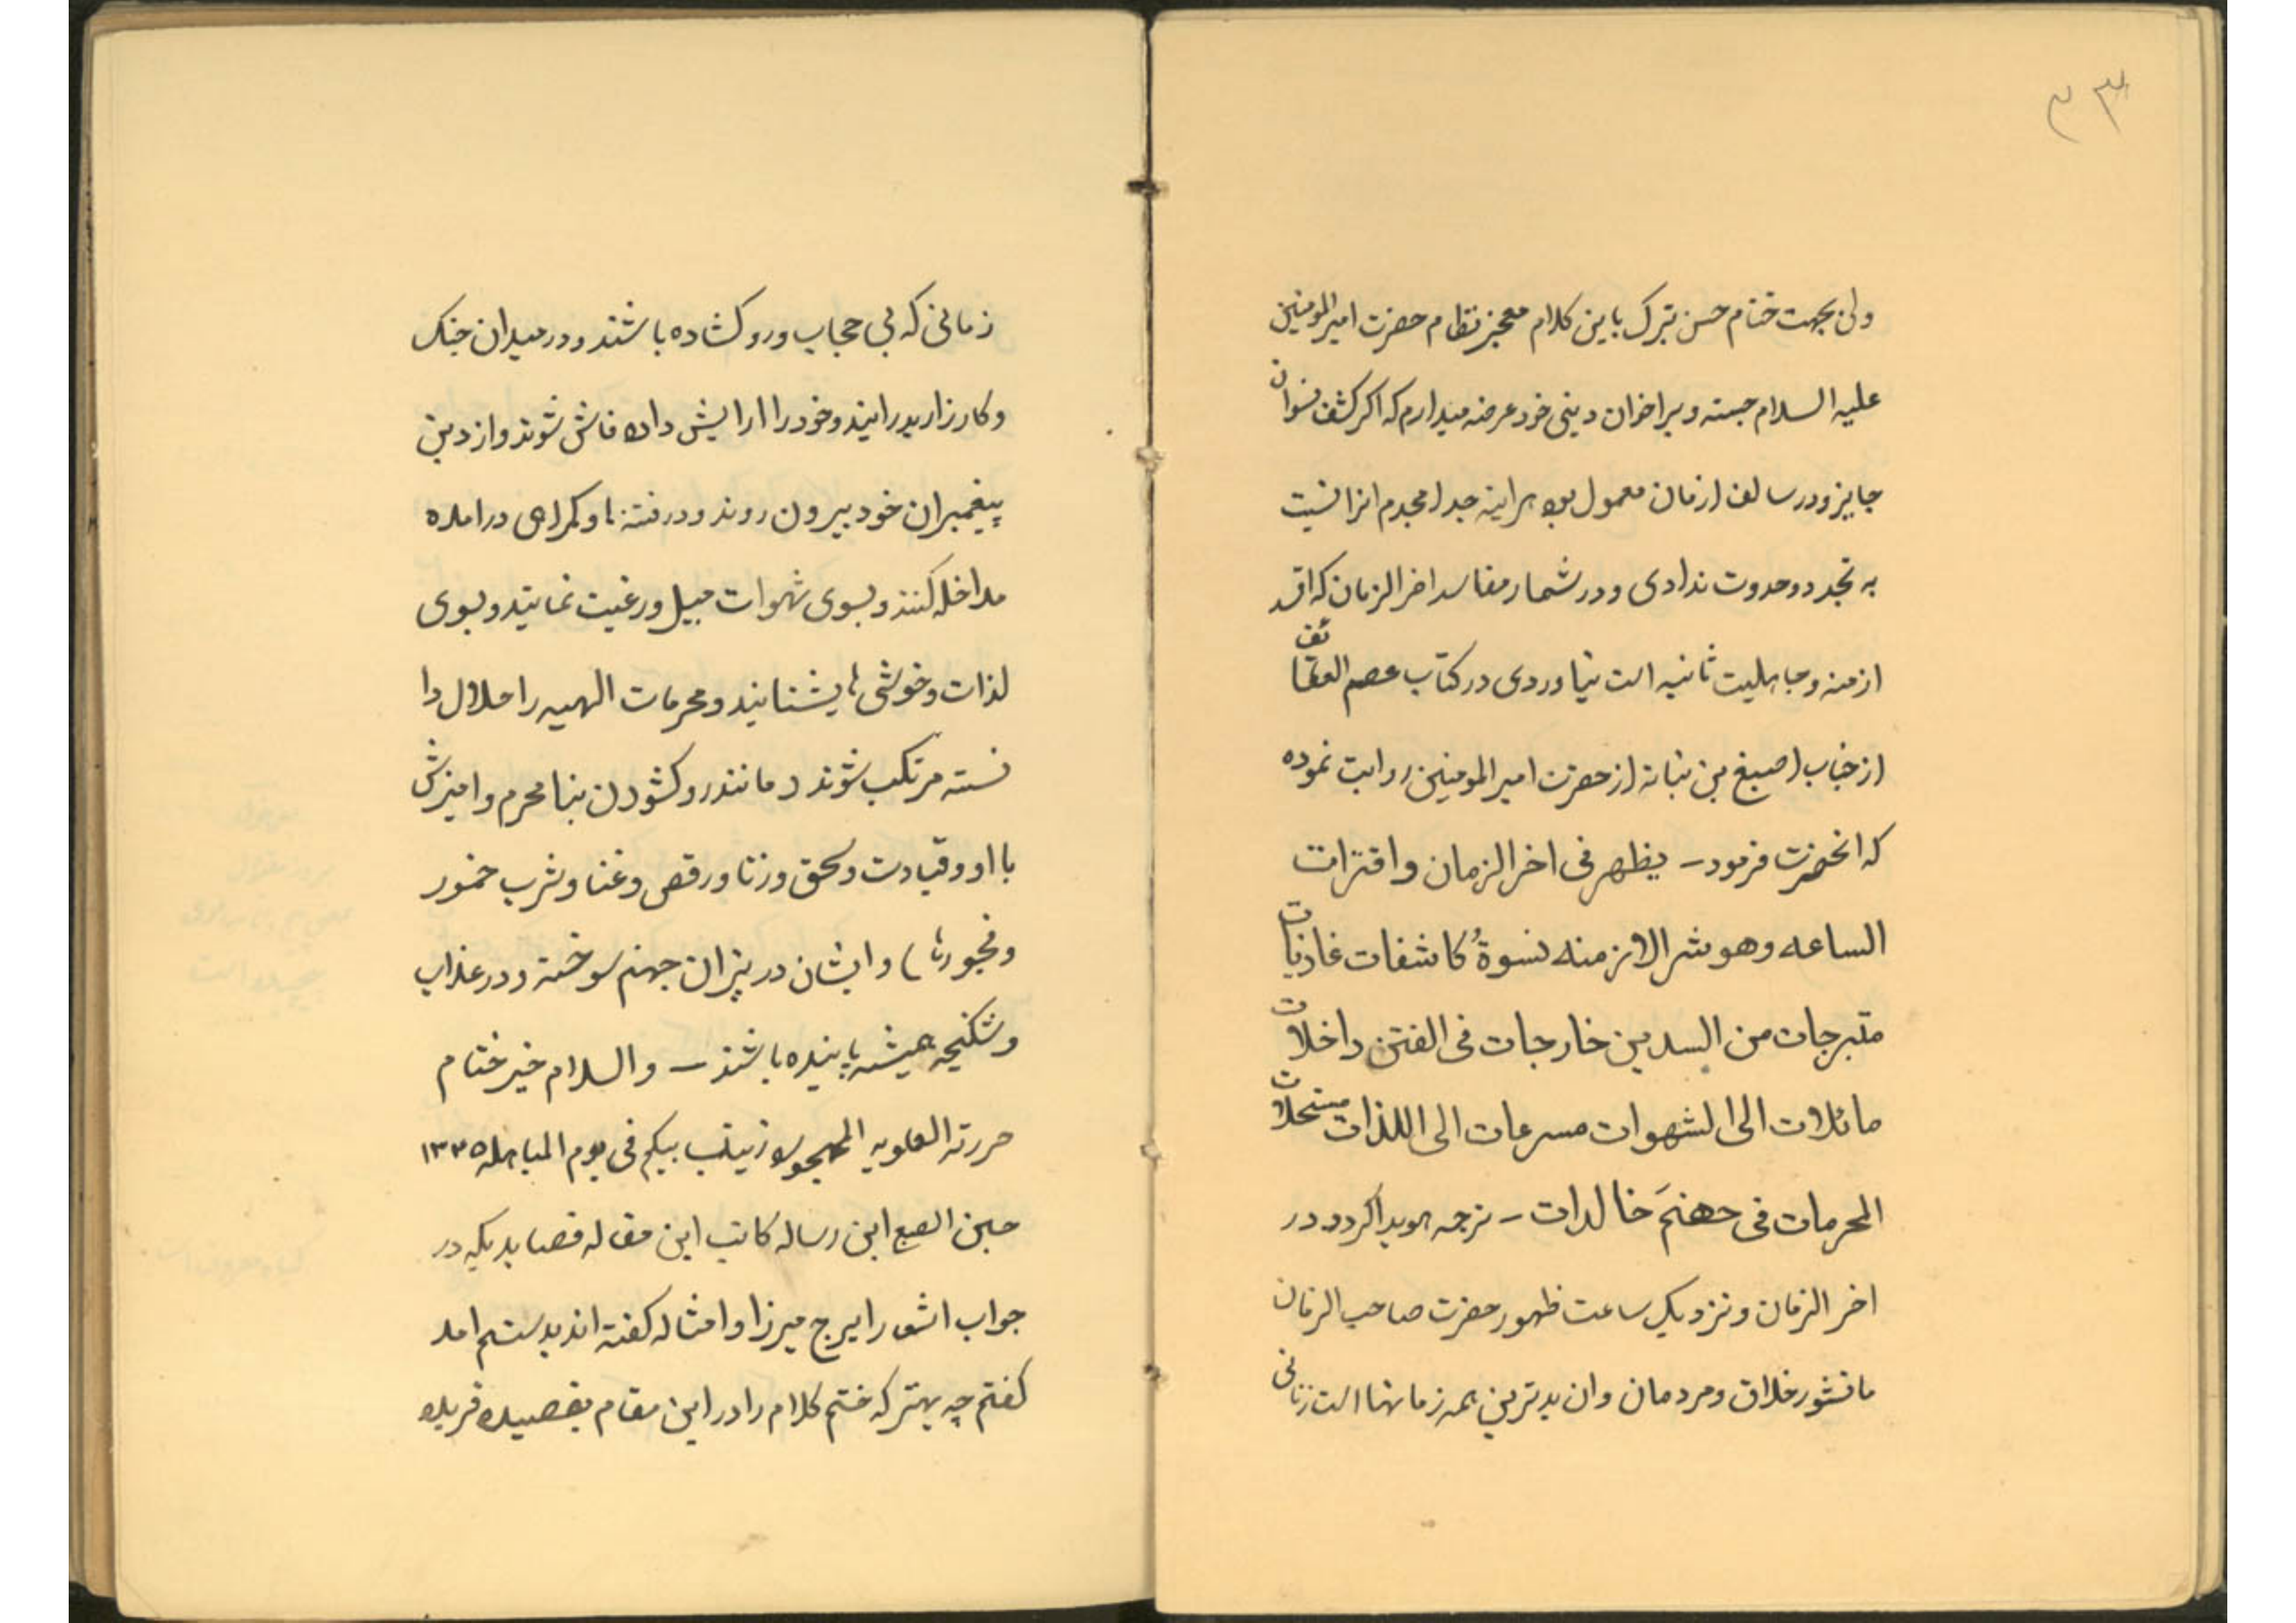 ٣٣
ولی بجهت ختام حسن تبرک باین کلام معجز نظام حضرت امیرالمومنین
علیه السلام جسته و براخوان دینی خود عرضه میدارم که اکر کشف نسوان
جایز و در سالف ازمان معمول بوه هراینه جدا مجدم انرا نسبت
به تجدد وحدوت ندادی و در شمار مفاسد اخرالزمان که
ازمنه وجاهلیت ثانیه است نیاوردی در کتاب عصم العقائف
از جناب اصبغ بن نباته از حضرت امیرالمومنین روایت نموده
که انحضرت فرمود ـ یظهر فی اخرالزمان واقترات
الساعه وهو شر الازمنه نسوةُ کاشفات عاریات
متبرجات من السدین خارجات فی الفتن داخلات
مائلات الی الشهوات مسرعات الی اللذات مستحلات
المحرمات فی جهنمَ خالدات ـ ترجمه هویدا کردد در
اخر الزمان ونزدیک ساعت ظهور حضرت صاحب الزمان
مانشور خلاق ومردمان وان بدترین همه زمانها است زنانی
زمانی که بی حجاب ورو کشاده باشند ودر میدان جنک
وکارزار بدرایند وخود را ارایش داده فاش شوند واز دین
پیغمبران خود بیرون روند ودر فتنه ها وکمراهی درامده
مداخله کنند وبسوی شهوات میل ورغبت نمایند وبسوی
لذات وخوشی ها بشتابند ومحرمات الهیه را حلال دا
نسته مرتکب شوند (مانند رو کشودن بنامحرم وامیزش
با او وقیادت وسحق وزنا ورقص وغنا وشرب خمور
وفجورها) وایشان در نیران جهنم سوخته ودر عذاب
وشکنجه همیشه پاینده باشند ـ والسلام خیر ختام
حررته العلویه المهجوره زینب بیکم فی یوم المباهله ١٣٣٥
حین الصبع این رساله کاتب این مقاله قصایدیکه در
جواب اشعار ایرج میرزا وامثاله کفته اند بدستم امد
کفتم چه بهتر که ختم کلام را در این مقام بقصیده فریده